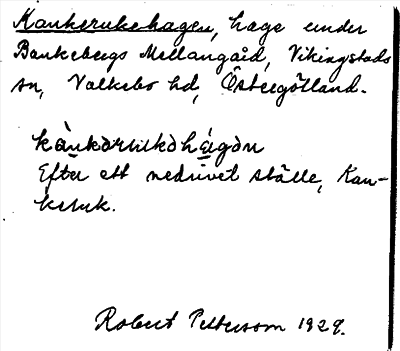 Kankerukehagen, hage under
Bankebergs Mellangård, Vikingstads
sn, Valkebo hd, Östergötland.
kànkərukəhégən
Efter ett nedrivet ställe, Kan-
keruk.
Robert Petterson 1929.